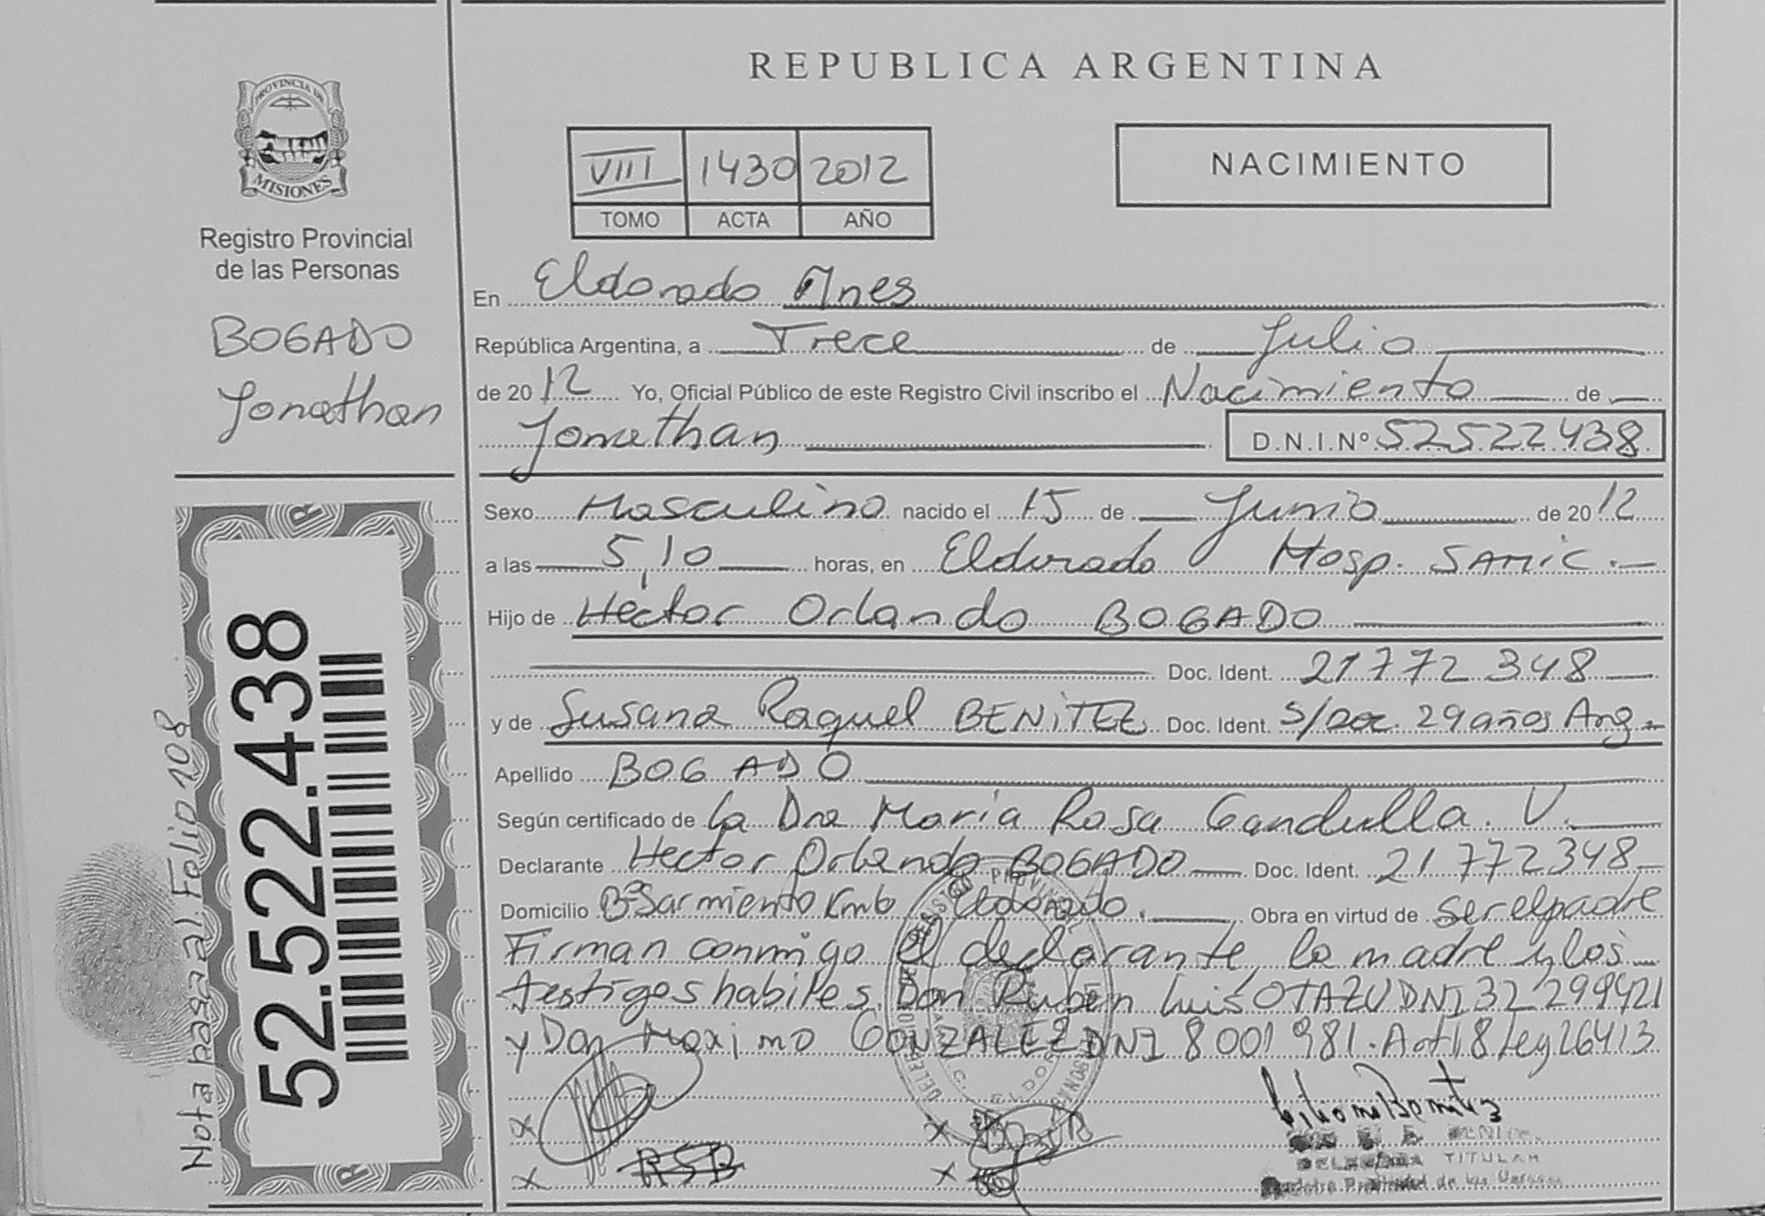 PROVINCIA DE
MISIONES
Registro Provincial
de las Personas
BOGADO
Jonathan
52.522.438
Nota pasa al Folio 108
REPUBLICA ARGENTINA
VIII 1430 2012
TOMO ACTA AÑO
NACIMIENTO
En Eldorado Mnes
República Argentina, a Trece de Julio
de 2012 Yo, Oficial Público de este Registro Civil inscribo el Nacimiento de
Jonathan D.N.I.Nº 52522438
Sexo Masculino nacido el 15 de Junio de 2012
a las 5,10 horas, en Eldorado Hosp. SAMIC.
Hijo de Héctor Orlando BOGADO
Doc. Ident. 21772348
y de Susana Raquel BENITEZ Doc. Ident. S/Doc. 29 años Arg.
Apellido BOGADO
Según certificado de la Dra María Rosa Gandulla. V.
Declarante Hector Orlando BOGADO Doc. Ident. 21772348
Domicilio Bº Sarmiento Km6 Eldorado. Obra en virtud de ser el padre
Firman conmigo el declarante, la madre y los
testigos habiles, Don Ruben Luis OTAZU DNI 32 299421
y Don Maximo GONZALEZ DNI 8001981. Art 18 Ley 26413
x x
x RSB x
TITULAR